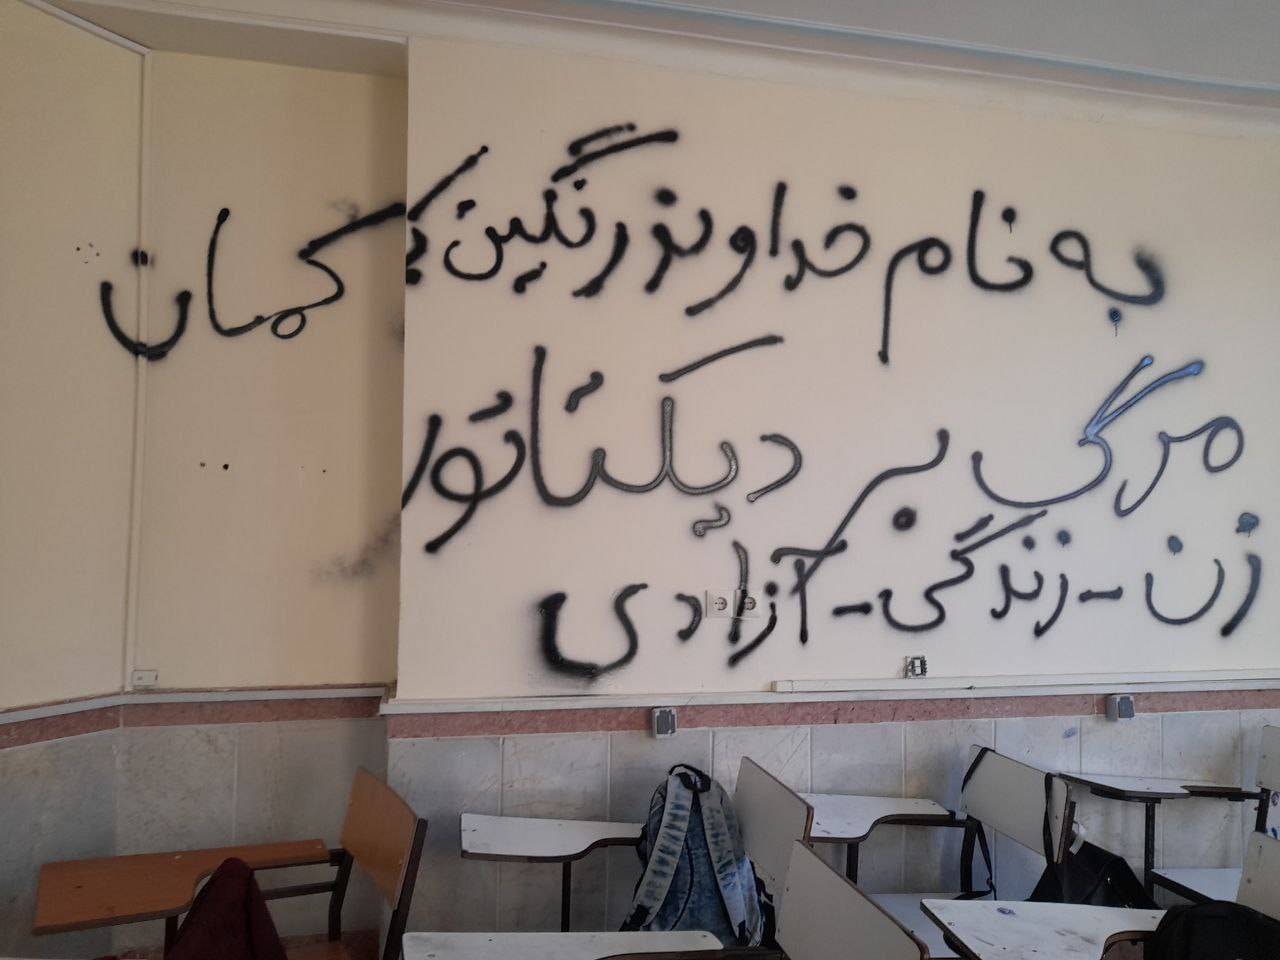 به نام خداوند رنگین کمان
مرگ بر دیکتاتور
زن - زندگی - آزادی